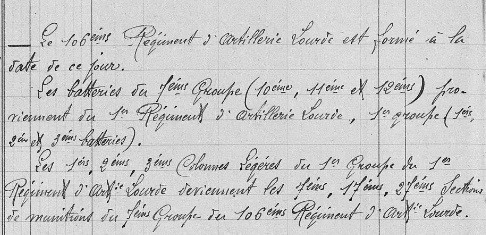 Le 106ème Régiment d'Artillerie Lourde est formé à la
date de ce jour.
Les batteries du 7ème Groupe (10ème, 11ème et 12ème) pro-
viennent du 1er Régiment d'Artillerie Lourde, 1er groupe (1ère,
2ème et 3ème batteries).
Les 1ère, 2ème, 3ème Colonnes Légères du 1er Groupe du 1er
Régiment d'Artie Lourde deviennent les 7ème, 17ème, 27ème Sections
de munitions du 7ème Groupe du 106ème Régiment d'Artie Lourde.